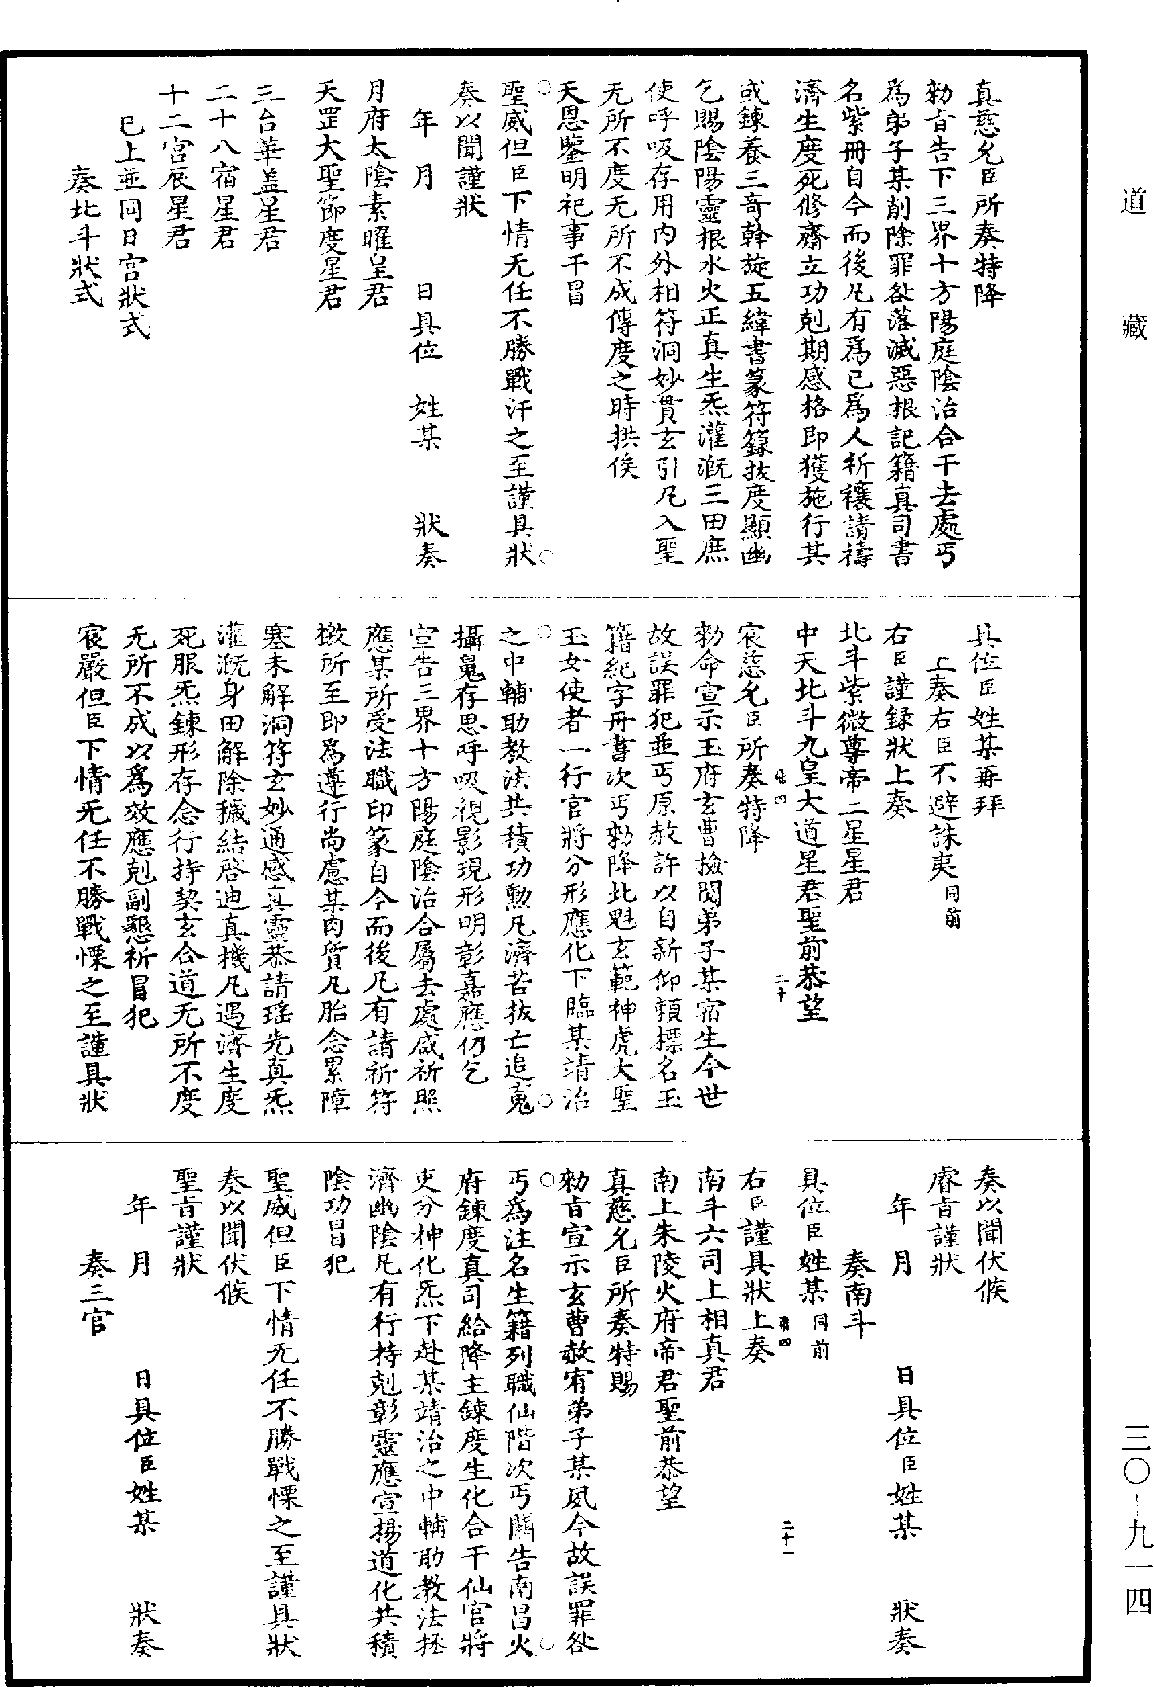 道藏
真慈允臣所奏特降
勑旨告下三界十方陽庭陰治合干去處丐
為弟子某削除罪咎落滅惡根記籍真司書
名紫冊自今而後凡有為己為人祈禳請禱
濟生度死修齋立功剋期感格即獲施行其
或鍊養三奇斡旋五緯書篆符籙拔度顯幽
乞賜陰陽靈根水火正真生炁灌溉三田庶
使呼吸存用內外相符洞妙貫玄引凡入聖
无所不度无所不成傳度之時拱俟
天恩鑒明祀事干冒
聖威但臣下情无任不勝戰汗之至謹具狀
奏以聞謹狀
年 月 日具位 姓某 狀奏
月府太陰素曜皇君
天罡大聖節度星君
三台華蓋星君
二十八宿星君
十二宮辰星君
已上並同日宮狀式
奏北斗狀式
具位臣姓某再拜
上奏右臣不避誅夷同前
右臣謹録狀上奏
北斗紫微尊帝二星星君
中天北斗九皇大道星君聖前恭望
宸慈允臣所奏特降
勑命宣示玉府玄曹撿閱弟子某宿生今世
故誤罪犯並丐原赦許以自新仰賴標名玉
籍紀字丹書次丐勑降北魁玄範神虎大聖
玉女使者一行官將分形應化下臨某靖治
之中輔助教法共積功勲凡濟苦拔亡追䰟
攝䰟存思呼吸視影現形明彰嘉應仍乞
宣告三界十方陽庭陰治合屬去處咸祈照
應某所受法職印篆自今而後凡有請祈符
檄所至即為遵行尚慮某肉質凡胎念累障
塞未解洞符玄妙通感真靈恭請瑶光真炁
灌溉身田解除穢結啓迪真機凡遇濟生度
死服炁鍊形存念行持契玄合道无所不度
无所不成以為效應剋副懇祈冒犯
宸嚴但臣下情无任不勝戰慄之至謹具狀
奏以聞伏候
睿旨謹狀
年 月 日具位臣姓某 狀奏
奏南斗
具位臣姓某同前
右臣謹具狀上奏
南斗六司上相真君
南上朱陵火府帝君聖前恭望
真慈允臣所奏特賜
勑旨宣示玄曹赦宥弟子某夙今故誤罪咎
丐為注名生籍列職仙階次丐關告南昌火
府鍊度真司給降主鍊度生化合干仙官將
吏分神化炁下赴某靖治之中輔助教法拯
濟幽陰凡有行持剋彰靈應宣揚道化共積
陰功冒犯
聖威但臣下情无任不勝戰慄之至謹具狀
奏以聞伏候
聖旨謹狀
年 月 日具位臣姓某 狀奏
奏三官
二十
二十一
三〇-九一四